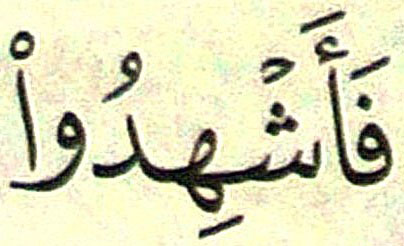 فَأَشْهِدُوا۟